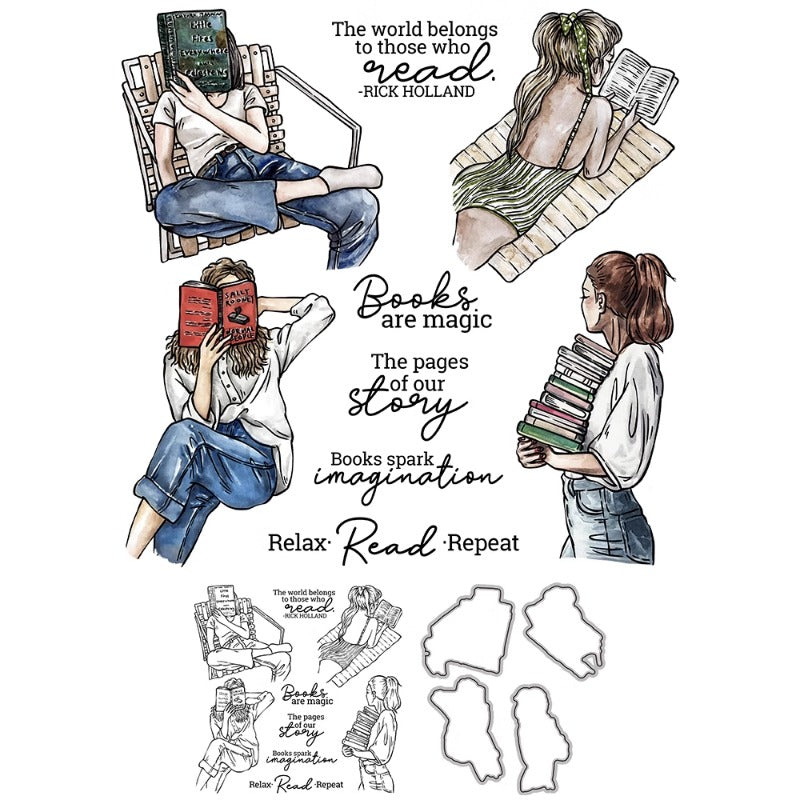 Little
Fires
Everywhere
The world belongs
to those who
read.
-RICK HOLLAND
SALLY
ROONEY
NORMAL
PEOPLE
Books
are magic
The pages
of our
story
Books spark
imagination
Relax· Read ·Repeat
The world belongs
to those who
read.
-RICK HOLLAND
Books
are magic
The pages
of our
story
Books spark
imagination
Relax· Read ·Repeat